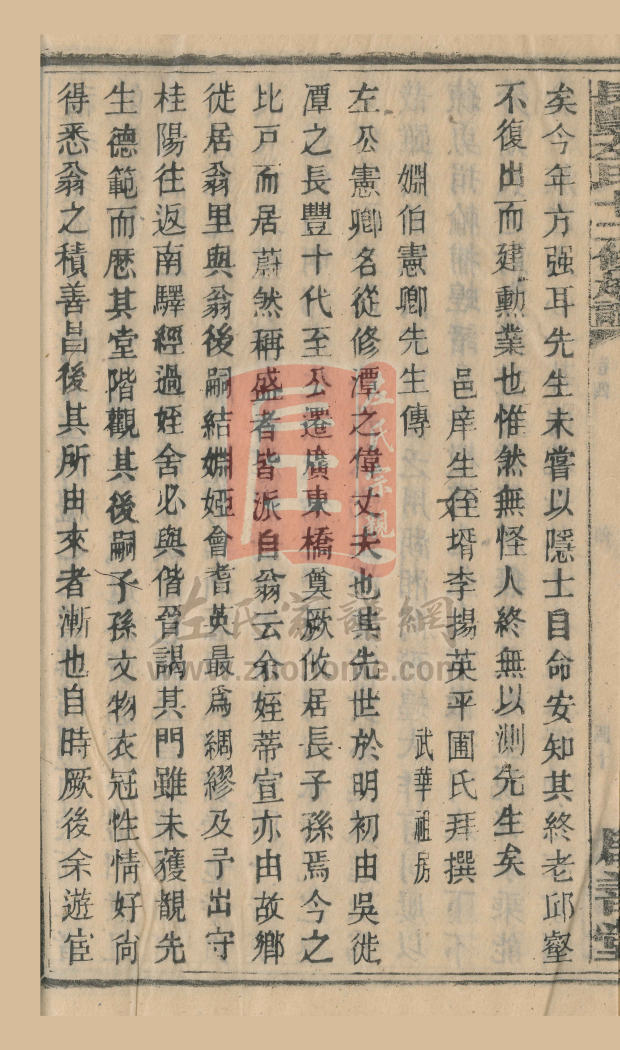 矣今年方强耳先生未嘗以隱士自命安知其終老邱壑
不復出而建勳業也惟然無怪人終無以測先生矣
邑庠生侄壻李揚英平圃氏拜撰
婣伯憲卿先生傳
武華祖房
左公憲卿名從修潭之偉丈夫也其先世於明初由吳徙
潭之長豐十代至公遷廣東橋奠厥攸居長子孫焉今之
比戸而居蔚然稱盛者皆派自翁云余姪蒂宣亦由故鄉
徙居翁里與翁後嗣結婣婭會耆英最爲綢繆及予出守
桂陽往返南驛經過姪舍必與偕晉謁其門雖未獲覩先
生德範而厯其堂階觀其後嗣子孫文物衣冠性情好尙
得悉翁之積善昌後其所由來者漸也自時厥後余遊宦
卷四
善堂
左氏宗親
左氏家譜網